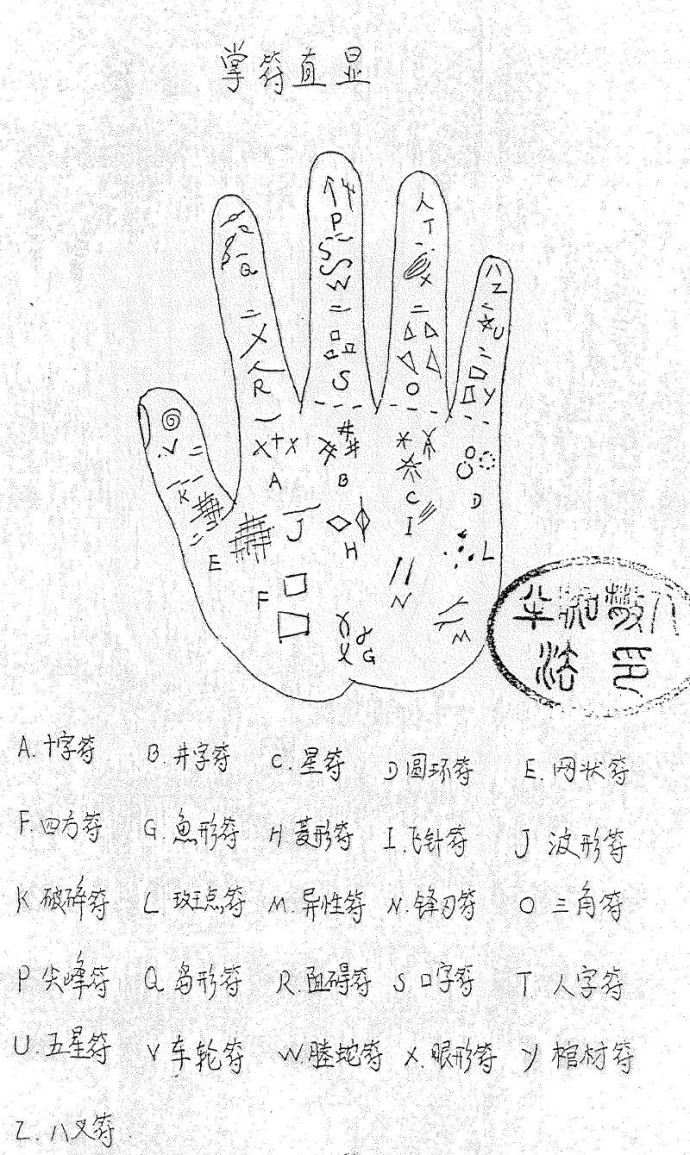 掌符直显
P
Q
T
X
W
Z
U
R
S
O
Y
V
K
A
B
C
D
E
J
H
I
L
F
N
M
G
法 印
A.十字符 B.井字符 C.星符 D圆环符 E.网状符
F.四方符 G.鱼形符 H菱形符 I.飞针符 J 波形符
K破碎符 L.斑点符 M.异性符 N.锋刃符 O 三角符
P尖峰符 Q岛形符 R.阻碍符 S口字符 T.人字符
U.五星符 V车轮符 W.螣蛇符 X.眼形符 Y棺材符
Z.八叉符